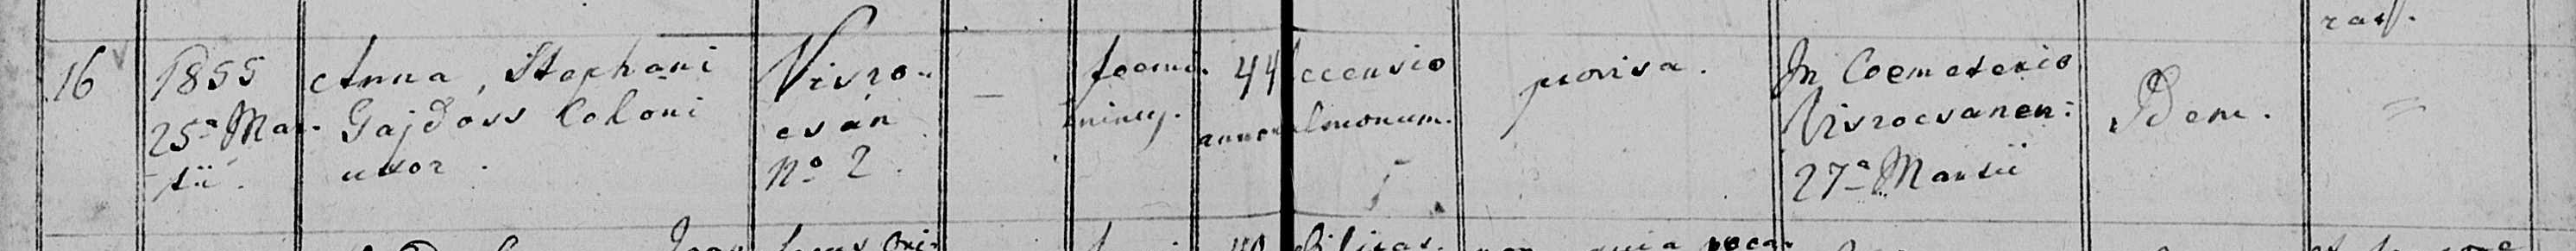 raff.
16
1855
25ª Mar-
tii.
Anna, Stephani
Gajdoss Coloni
uxor.
Visro-
cván
Nº 2.
—
foemi-
ninus.
44
anno
ccensio
lmonum.
provisa.
In Coemeterio
Visrocvanen:
27ª Martii
Idem.
=